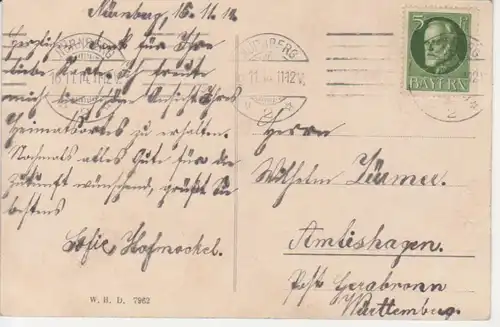 Nürnberg, 16.11.14
Herzlichen Dank für Ihre
liebe Karte. Ich freute
mich die schöne Ansicht Ihres
Heimatortes zu erhalten.
Nochmals alles Gute für die
Zukunft wünschend, grüßt Sie
bestens
Sofie Hofmockel.
W. H. D. 7962
NÜRNBERG
16.11.14. 11-12V.
2
NÜRNBERG
11-12V.
2
5
BAYERN
Herrn
Wilhelm
Amlishagen.
Post Gerabronn
Württemberg.